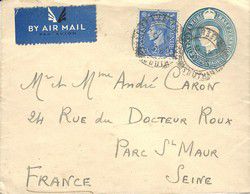 BY AIR MAIL
PAR AVION
Mr et Mme André Caron
24 Rue du Docteur Roux
Parc St Maur
Seine
France